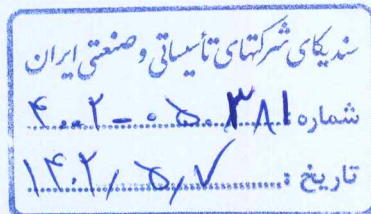 سندیکای شرکتهای تأسیساتی و صنعتی ایران
شماره: ۴۰۲-۰۵۰۳۸۱
تاریخ: ۱۴۰۲/۵/۷